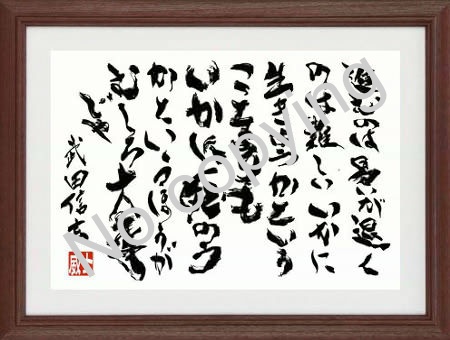 進むのは易いが退く
のは難しいいかに
生きようかという
ことよりも
いかに死のう
かというほうが
むしろ大事
じゃ
武田信玄
No copying